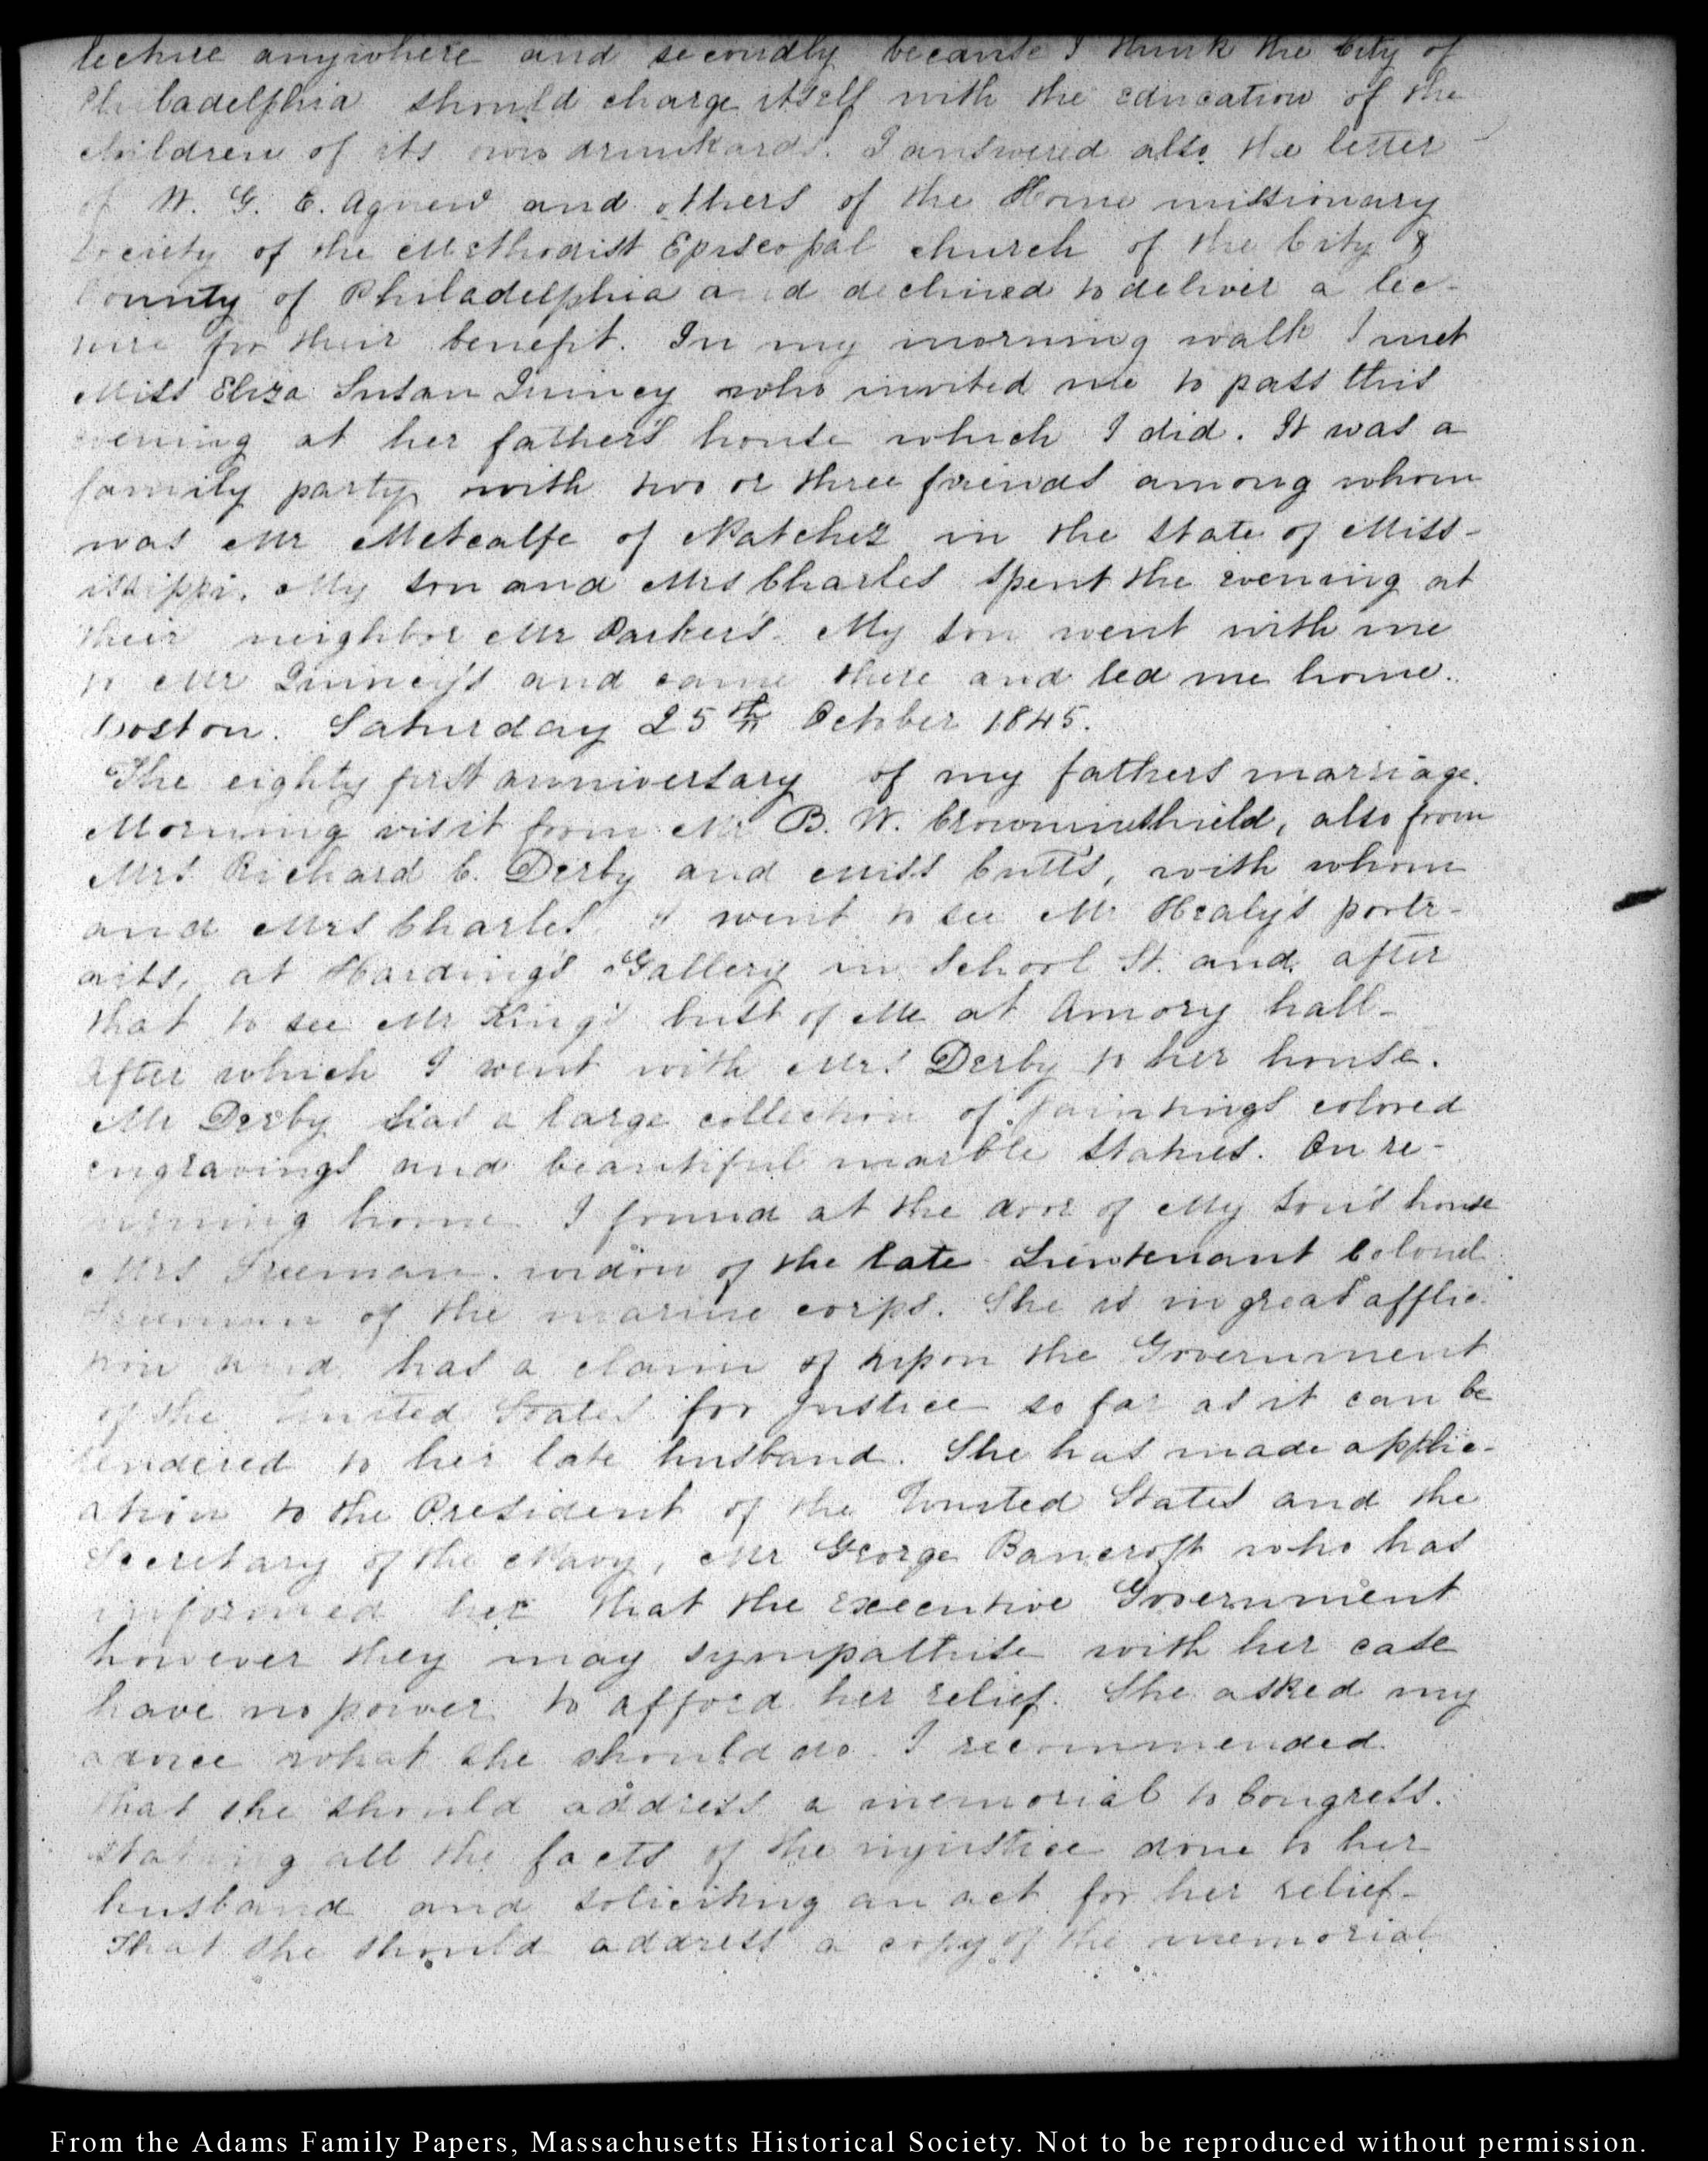 lecture anywhere and secondly because I think the City of
Philadelphia should charge itself with the education of the
children of its own drunkards. I answered also the letter
of W. G. E. Agnew and others of the Home missionary
Society of the Methodist Episcopal church of the City &
County of Philadelphia and declined to deliver a lec-
ture for their benefit. In my morning walk I met
Miss Eliza Susan Quincy who invited me to pass this
evening at her father's house which I did. It was a
family party with two or three friends among whom
was Mr Metcalfe of Natchez in the State of Miss-
issippi. My son and Mrs Charles spent the evening at
their neighbor Mr Parker's. My son went with me
to Mr Quincy's and came there and led me home.
Boston. Saturday 25th October 1845.
The eighty first anniversary of my fathers marriage.
Morning visit from Mr B. W. Crowninshield, also from
Mrs Richard C. Derby and Miss Cutts, with whom
and Mrs Charles I went to see Mr Healy's portr-
aits, at Harding's Gallery in School St. and after
that to see Mr King's bust of Me at Amory hall-
After which I went with Mrs Derby to her house.
Mr Derby has a large collection of paintings colored
engravings and beautiful marble statues. On re-
turning home I found at the door of My son's house
Mrs Freeman. widow of the late Lieutenant Colonel
Freeman of the marine corps. She is in great afflic-
tion and has a claim of upon the Government
of the United States for Justice so far as it can be
rendered to her late husband. She has made applic-
ation to the President of the United States and the
Secretary of the Navy, Mr George Bancroft who has
informed her that the executive Government
however they may sympathise with her case
have no power to afford her relief. She asked my
advice what she should do. I recommended
that she should address a memorial to Congress.
stating all the facts of the injustice done to her
husband and soliciting an act for her relief-
That she should address a copy of the memorial
From the Adams Family Papers, Massachusetts Historical Society. Not to be reproduced without permission.